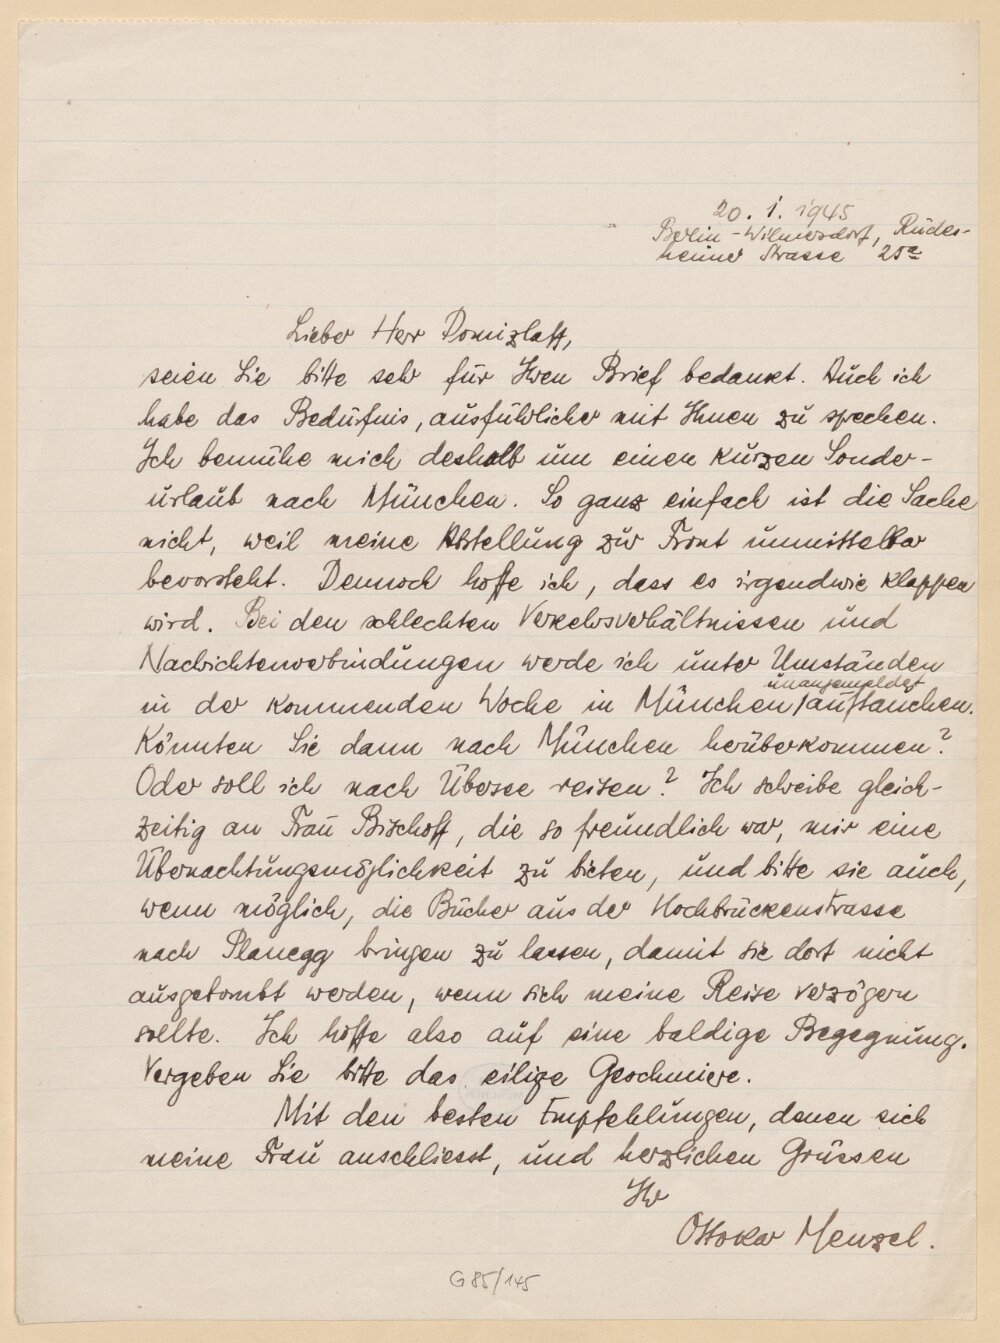 20. 1. 1945
Berlin-Wilmersdorf, Rüdes-
heimer Strasse 25a
Lieber Herr Domizlaff,
seien Sie bitte sehr für Ihren Brief bedankt. Auch ich
habe das Bedürfnis, ausführlicher mit Ihnen zu sprechen.
Ich bemühe mich deshalb um einen kurzen Sonder-
urlaub nach München. So ganz einfach ist die Sache
nicht, weil meine Abstellung zur Front unmittelbar
bevorsteht. Dennoch hoffe ich, dass es irgendwie klappen
wird. Bei den schlechten Verkehrsverhältnissen und
Nachrichtenverbindungen werde ich unter Umständen
unangemeldet
in der kommenden Woche in München auftauchen.
Könnten Sie dann nach München herüberkommen?
Oder soll ich nach Übersee reisen? Ich schreibe gleich-
zeitig an Frau Bischoff, die so freundlich war, mir eine
Übernachtungsmöglichkeit zu bieten, und bitte sie auch,
wenn möglich, die Bücher aus der Hochbrückenstrasse
nach Planegg bringen zu lassen, damit sie dort nicht
ausgebombt werden, wenn sich meine Reise verzögern
sollte. Ich hoffe also auf eine baldige Begegnung.
Vergeben Sie bitte das eilige Geschmiere.
Mit den besten Empfehlungen, denen sich
meine Frau anschliesst, und herzlichen Grüssen
Ihr
Ottokar Menzel.
G 85/145